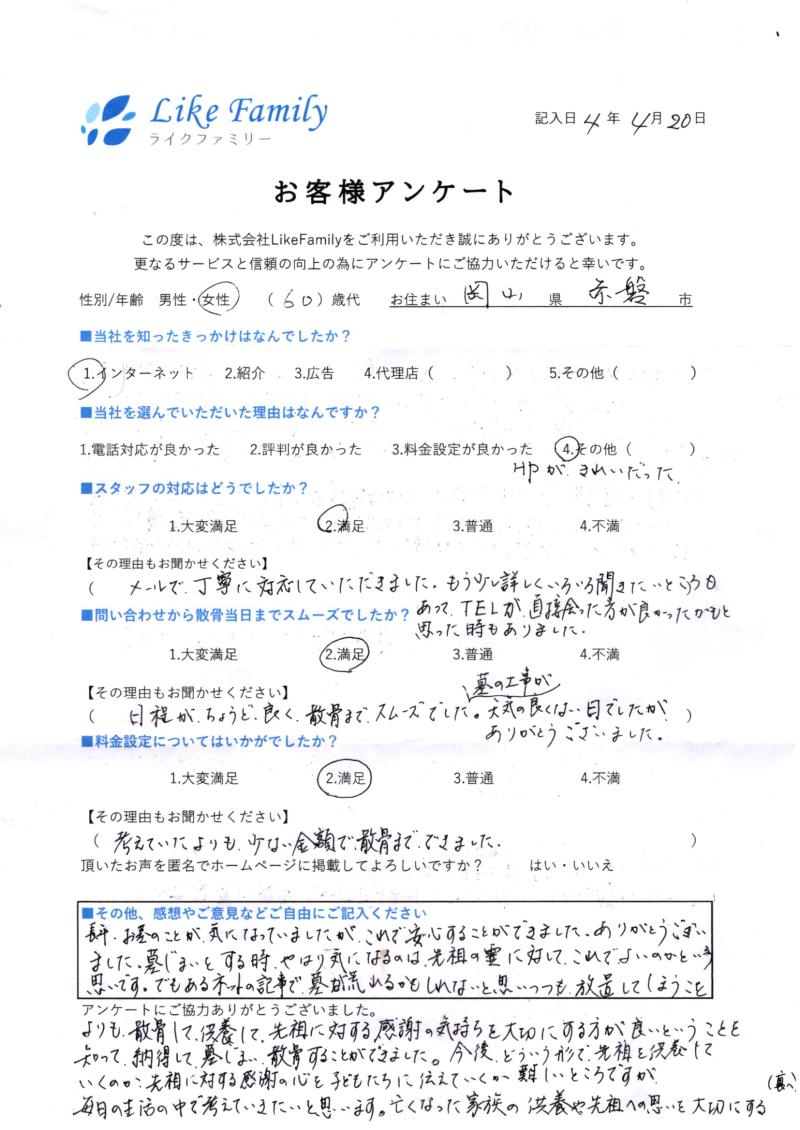 Like Family
ライクファミリー
記入日 4 年 4月 20日
お客様アンケート
この度は、株式会社LikeFamilyをご利用いただき誠にありがとうございます。
更なるサービスと信頼の向上の為にアンケートにご協力いただけると幸いです。
性別/年齢 男性・女性 ( 60 ) 歳代 お住まい 岡山 県 赤磐 市
■当社を知ったきっかけはなんでしたか？
1.インターネット 2.紹介 3.広告 4.代理店 ( ) 5.その他 ( )
■当社を選んでいただいた理由はなんですか？
1.電話対応が良かった 2.評判が良かった 3.料金設定が良かった 4.その他 ( )
HPが、きれいだった
■スタッフの対応はどうでしたか？
1.大変満足 2.満足 3.普通 4.不満
【その理由もお聞かせください】
( メールで、丁寧に対応していただきました。もう少し詳しくいろいろ聞きたいところも
あって、TELか、直接会った方が良かったかもと
思った時もありました。
■問い合わせから散骨当日までスムーズでしたか？
1.大変満足 2.満足 3.普通 4.不満
【その理由もお聞かせください】
墓の工事が
( 日程が、ちょうど、良く、散骨まで、スムーズでした。天気の良くない日でしたが )
ありがとうございました。
■料金設定についてはいかがでしたか？
1.大変満足 2.満足 3.普通 4.不満
【その理由もお聞かせください】
( 考えていたよりも、少ない金額で、散骨まで、できました。 )
頂いたお声を匿名でホームページに掲載してよろしいですか？ はい・いいえ
■その他、感想やご意見などご自由にご記入ください
長年、お墓のことが、気になっていましたが、これで安心することができました。ありがとうござい
ました。墓じまいを、する時、やはり気になるのは、先祖の霊に対して、これでよいのかという
思いです。でもあるネットの記事で、墓が荒れるかもしれないと思いつつも、放置してしまうこと
アンケートにご協力ありがとうございました。
よりも、散骨して、供養して、先祖に対する感謝の気持ちを大切にする方が良いということを
知って、納得して、墓じまい、散骨することができました。今後、どういう形で、先祖を供養して
いくのか、先祖に対する感謝の心を子どもたちに伝えていくか難しいところですが
毎日の生活の中で考えていきたいと思います。亡くなった家族の供養や先祖への思いを大切にする
(裏へ)